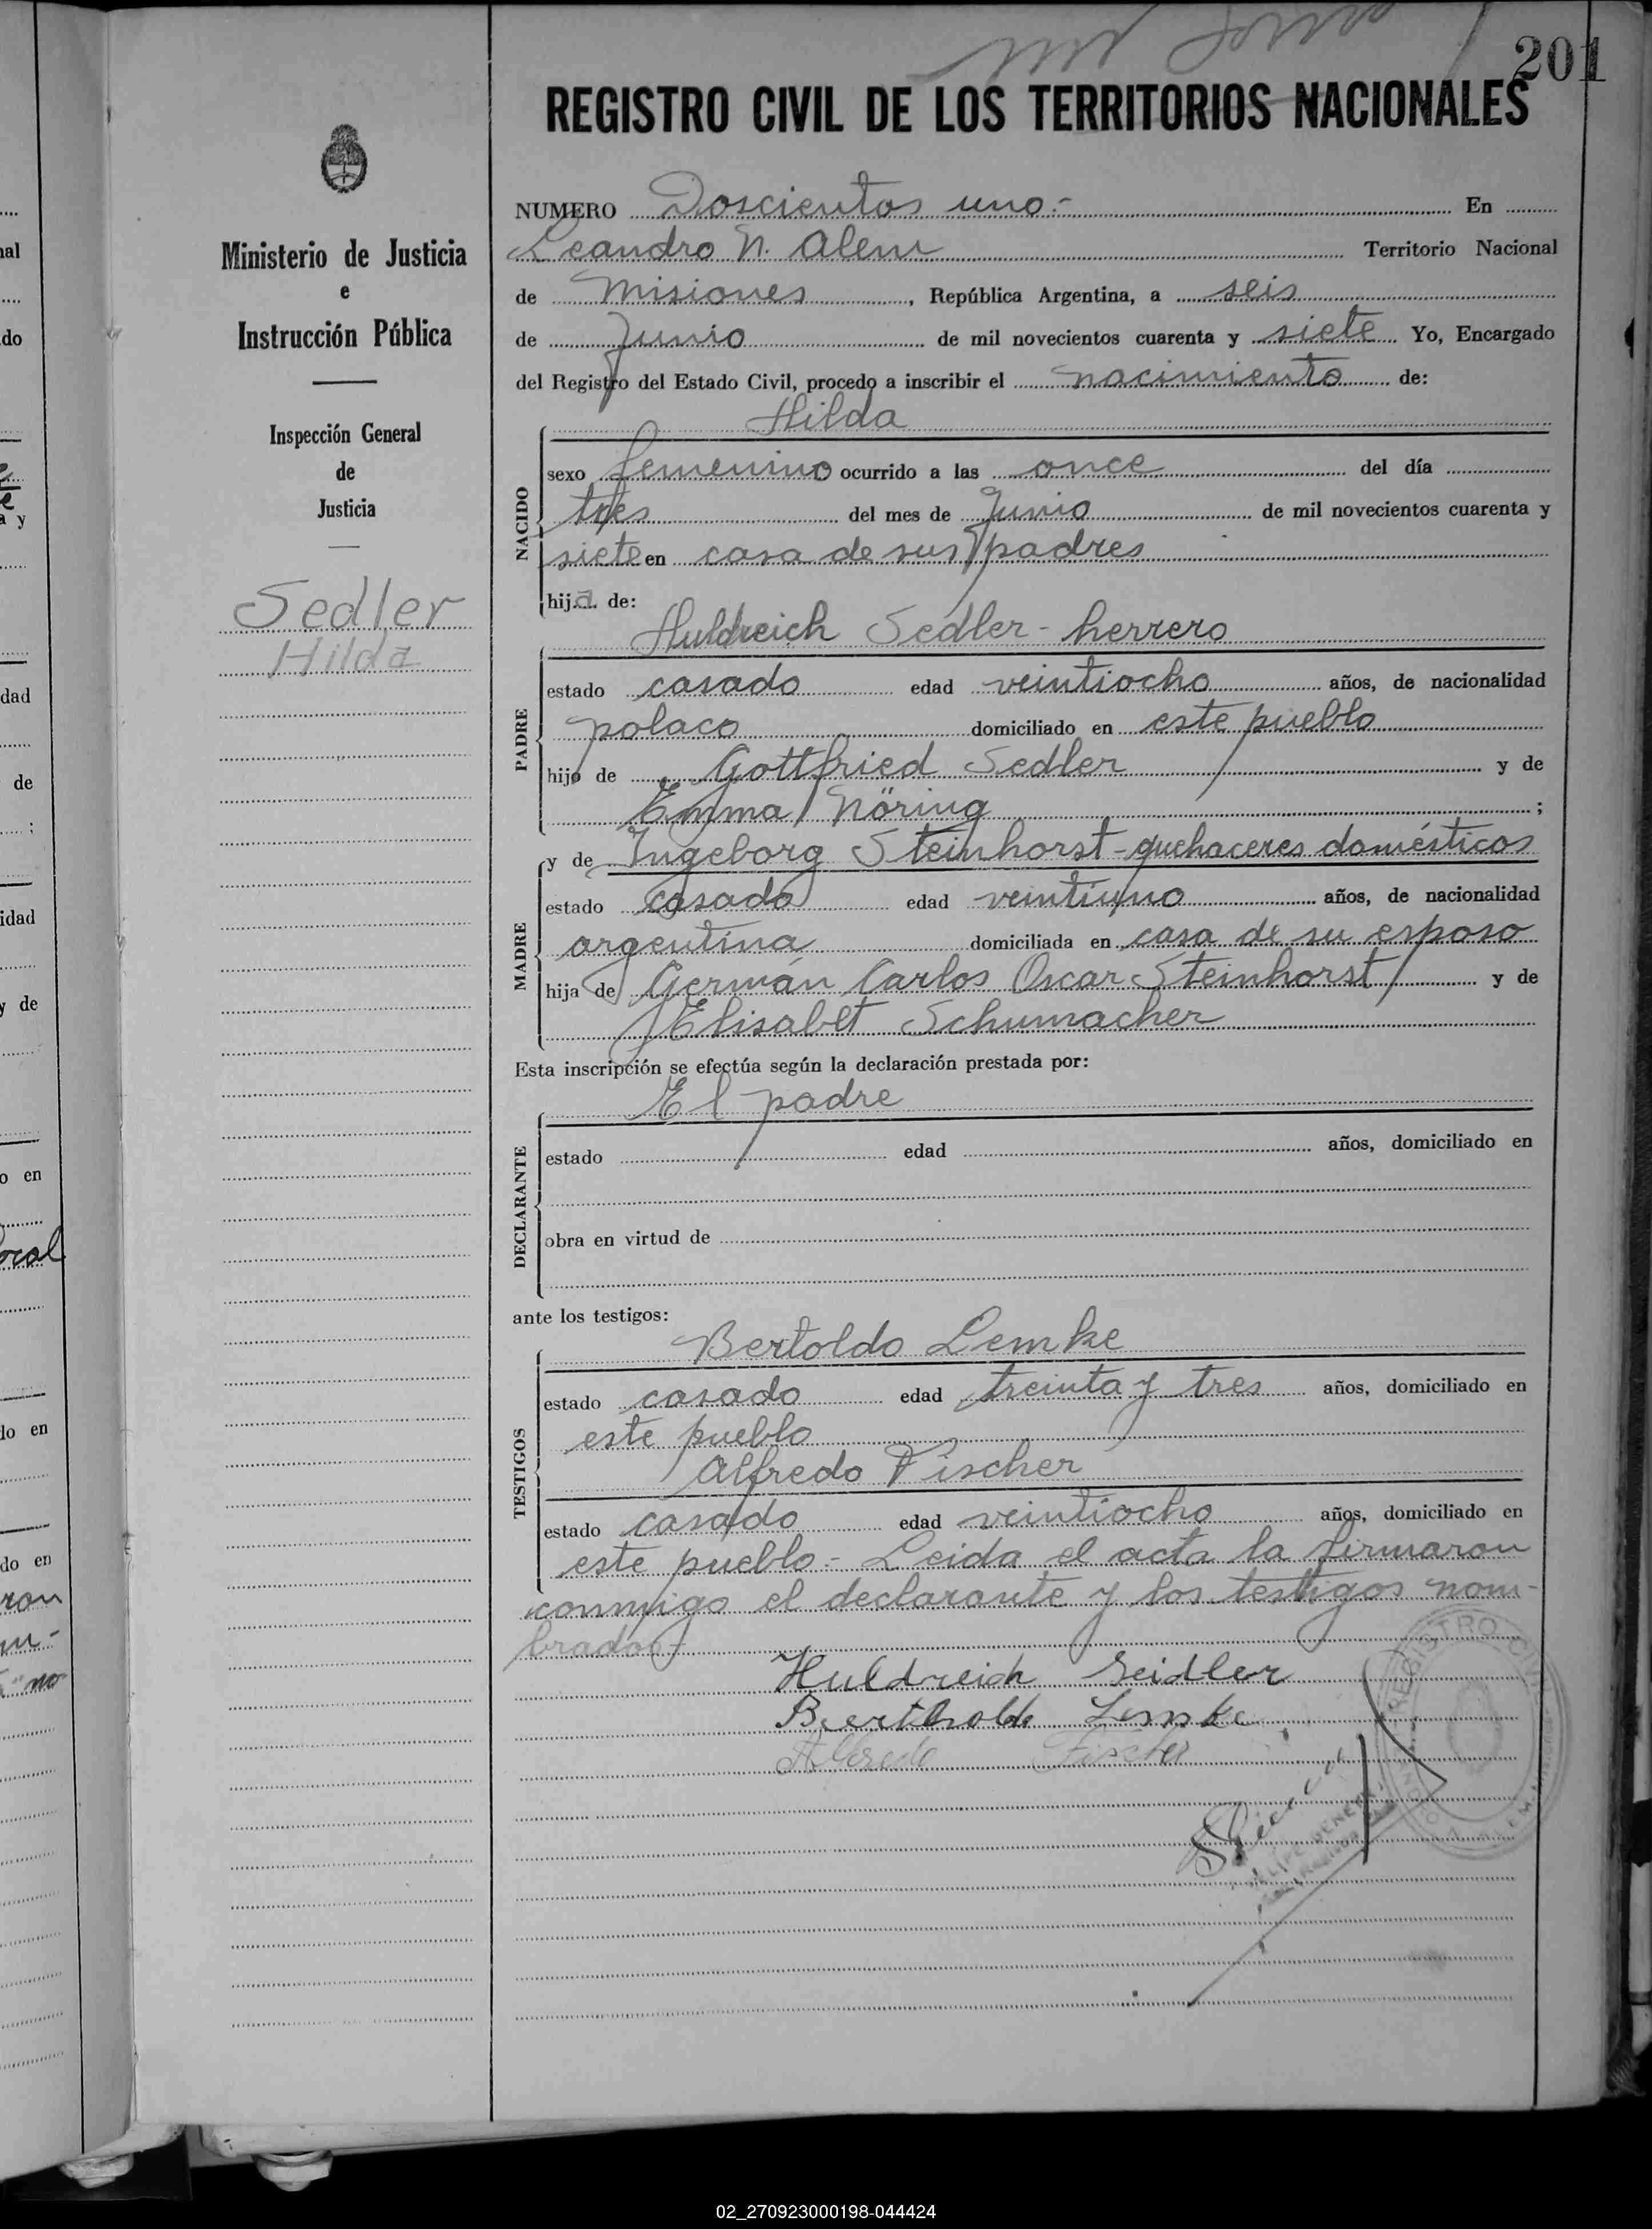 201
REGISTRO CIVIL DE LOS TERRITORIOS NACIONALES
Ministerio de Justicia
e
Instrucción Pública
Inspección General
de
Justicia
Sedler
Hilda
NUMERO Doscientos uno.- En
Leandro N. Alem Territorio Nacional
de Misiones, República Argentina, a seis
de Junio de mil novecientos cuarenta y siete Yo, Encargado
del Registro del Estado Civil, procedo a inscribir el nacimiento de:
NACIDO
Hilda
sexo femenino ocurrido a las once del día
tres del mes de Junio de mil novecientos cuarenta y
siete en casa de sus padres
hija de:
PADRE
Huldreich Sedler - herrero
estado casado edad veintiocho años, de nacionalidad
polaco domiciliado en este pueblo
hijo de Gottfried Sedler y de
Emma Nöring ;
MADRE
y de Ingeborg Steinhorst - quehaceres domésticos
estado casada edad veintiuno años, de nacionalidad
argentina domiciliada en casa de su esposo
hija de Germán Carlos Oscar Steinhorst y de
Elisabet Schumacher
Esta inscripción se efectúa según la declaración prestada por:
DECLARANTE
El padre
estado edad años, domiciliado en
obra en virtud de
ante los testigos:
TESTIGOS
Bertoldo Lemke
estado casado edad treinta y tres años, domiciliado en
este pueblo
Alfredo Fischer
estado casado edad veintiocho años, domiciliado en
este pueblo.- Leida el acta la firmaron
conmigo el declarante y los testigos nom-
brados.-
Huldreich Seidler
Berthold Lemke
Alfredo Fischer
REGISTRO CIVIL
02_270923000198-044424